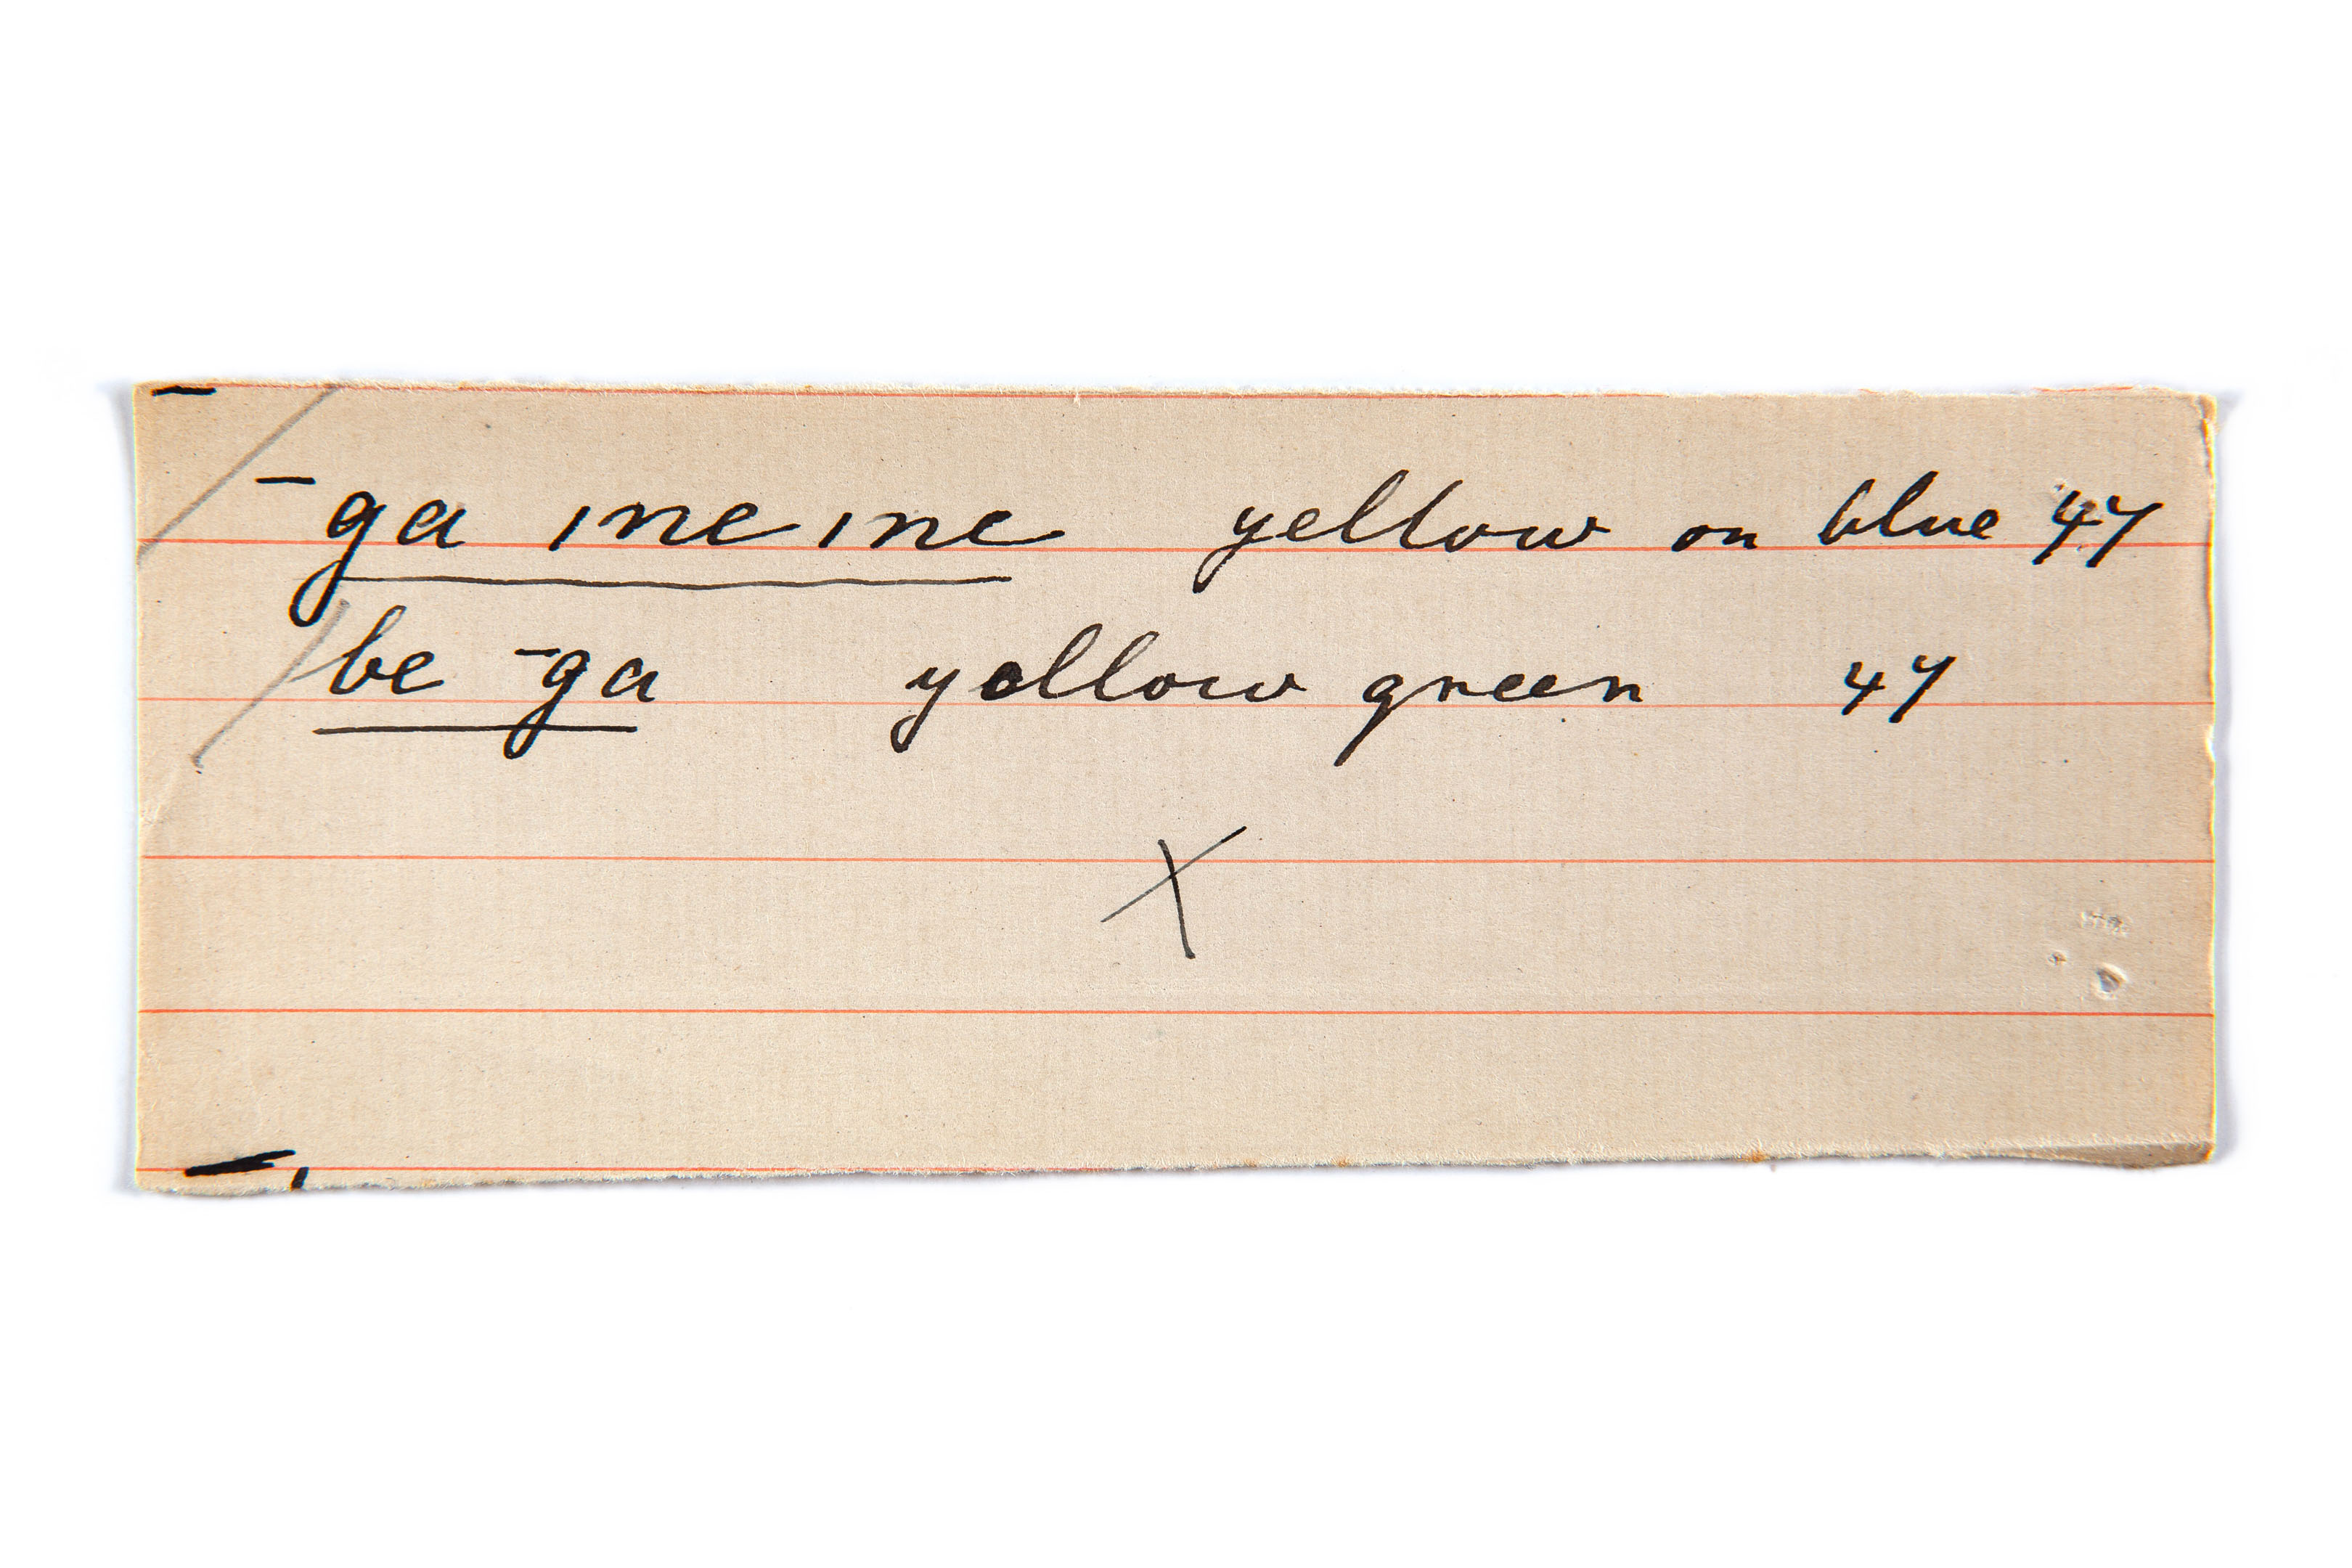 ‾ga ıneıne yellow on blue 47
be ‾ga yellow green 47
X